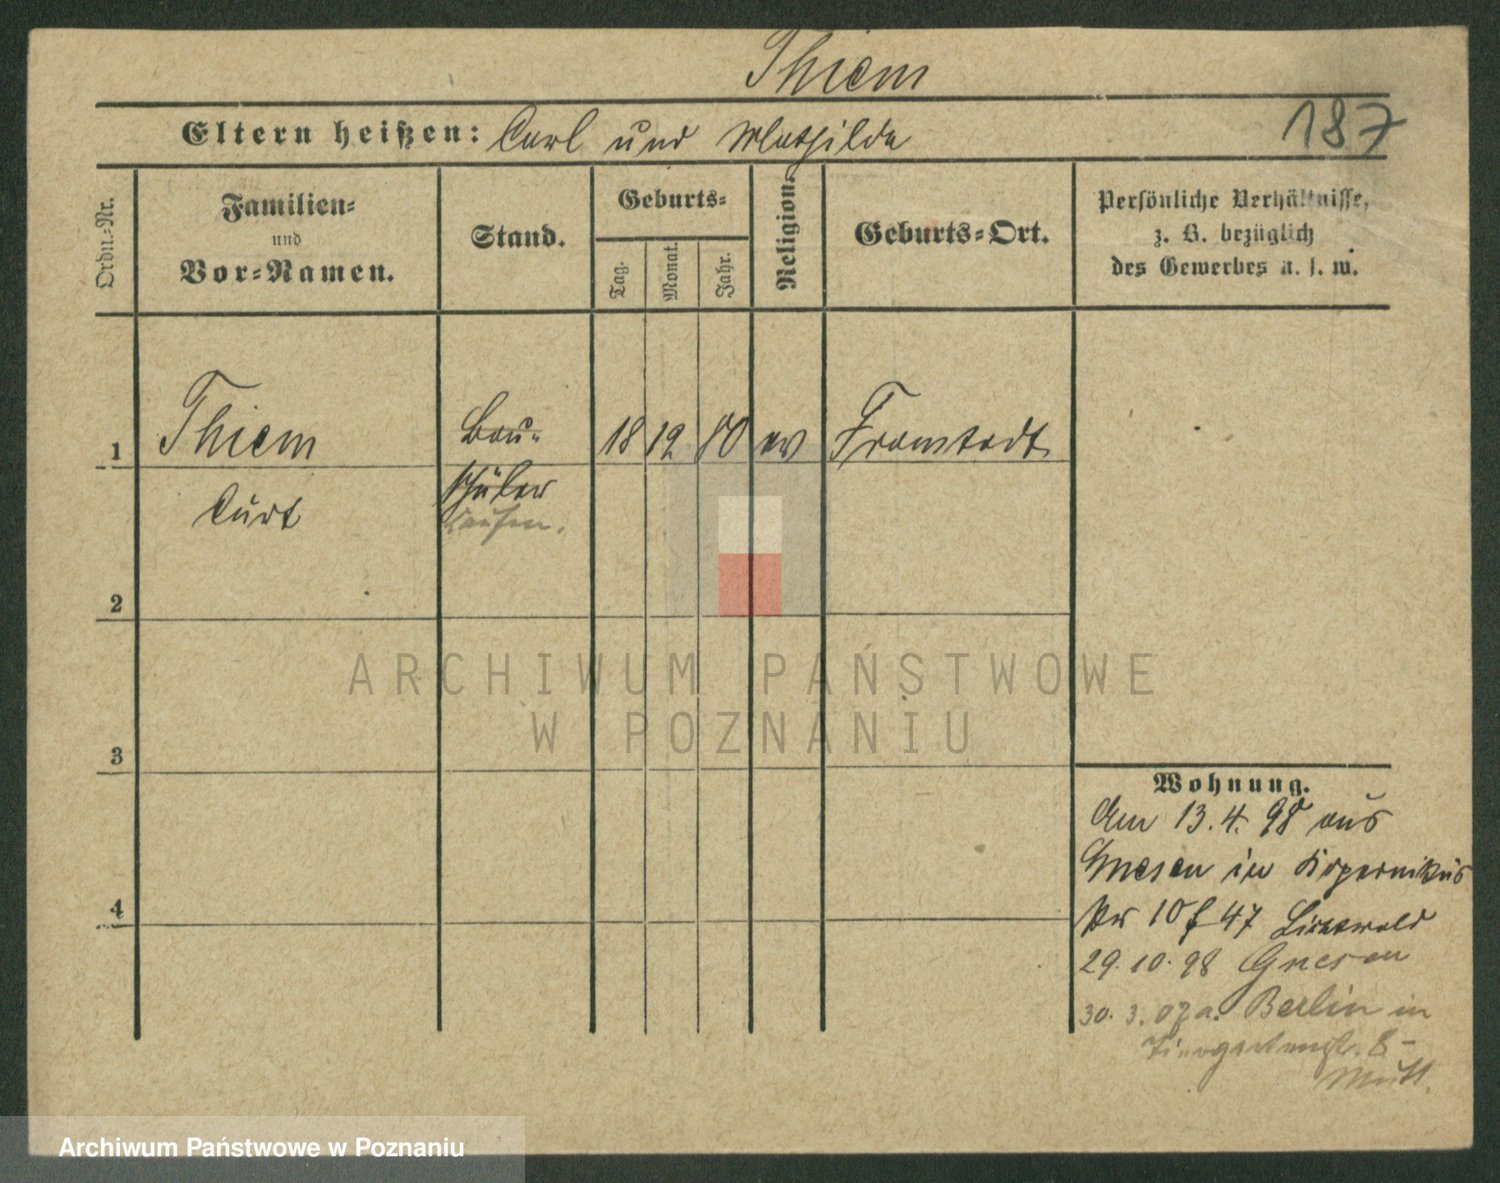 Thiem
187
Eltern heißen: Carl und Mathilde
Ordn.-Nr.
Familien-
und
Vor-Namen.
Stand.
Geburts-
Tag.
Monat.
Jahr.
Religion.
Geburts-Ort.
Persönliche Verhältnisse,
z. B. bezüglich
des Gewerbes u. s. w.
1
Thiem
Bau-
18
12
80
ev
Fraustadt
Curt
schüler
Kaufm.
2
3
4
ARCHIWUM PAŃSTWOWE
W POZNANIU
Wohnung.
Am 13.4.98 aus
Gnesen in Kopernikus
Str 10 f 47 Lichtwald
29.10.98 Gnesen
30. 3. 07 a. Berlin in
Tiergartenstr. 8-
Mutt.
Archiwum Państwowe w Poznaniu